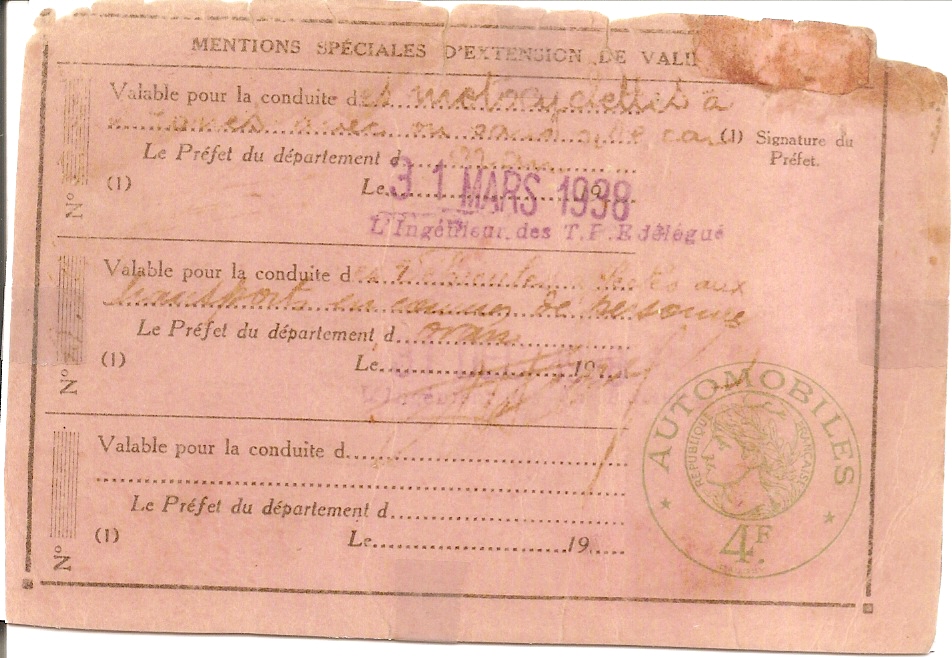 MENTIONS SPÉCIALES D'EXTENSION DE VALI
Valable pour la conduite des motocyclettes à
avec ou sans
(1) Signature du
Préfet.
Le Préfet du département d
(1)
Le 31 MARS 1938
L'Ingénieur des T.P.E délégué
N°
Valable pour la conduite des véhicules affectés aux
transports en commun de personne
Le Préfet du département d oran
(1)
Le 31 19
N°
Valable pour la conduite d
Le Préfet du département d
(1)
Le 19
N°
AUTOMOBILES
RÉPUBLIQUE FRANÇAISE
4F.